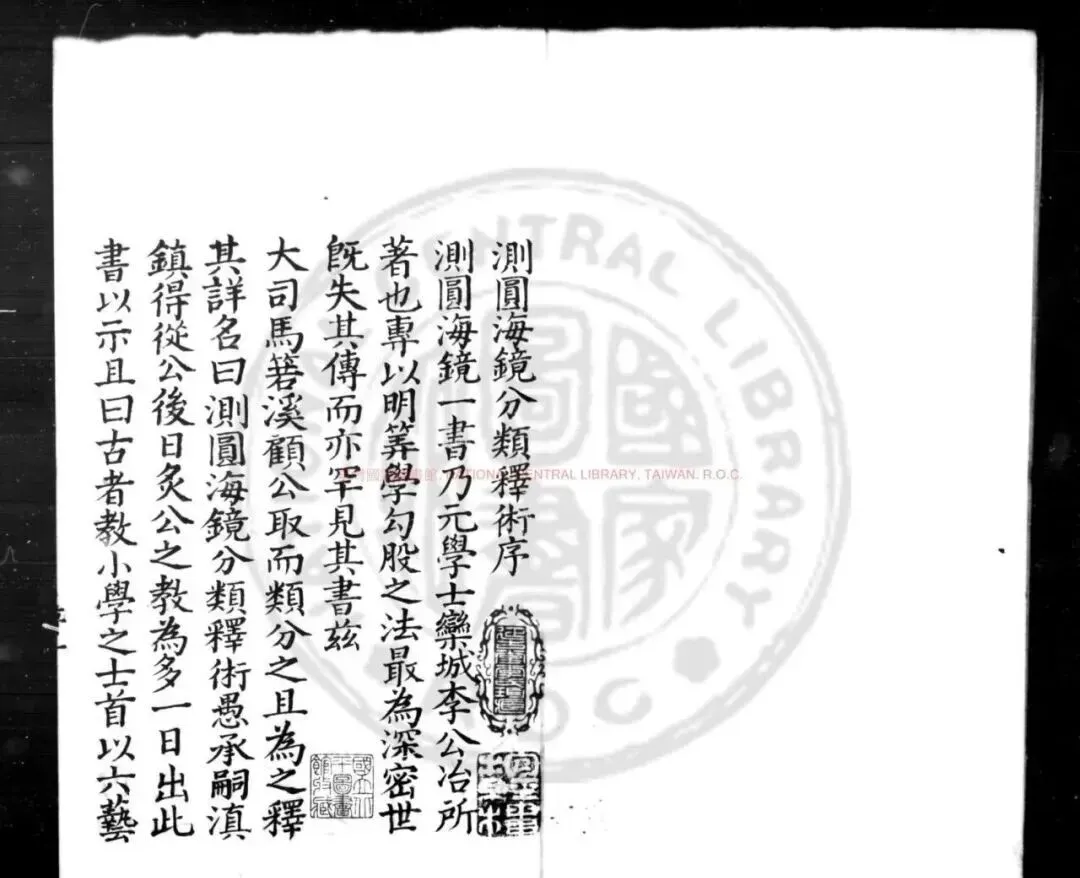 測圓海鏡分類釋術序
測圓海鏡一書乃元學士欒城李公冶所
著也專以明筭學勾股之法最為深密世
旣失其傳而亦罕見其書兹
大司馬箬溪顧公取而類分之且為之釋
其詳名曰測圓海鏡分類釋術愚承嗣滇
鎮得從公後日炙公之教為多一日出此
書以示且曰古者教小學之士首以六藝
國立中央圖書館收藏
CENTRAL LIBRARY
R.O.C.
NATIONAL CENTRAL LIBRARY, TAIWAN. R.O.C.